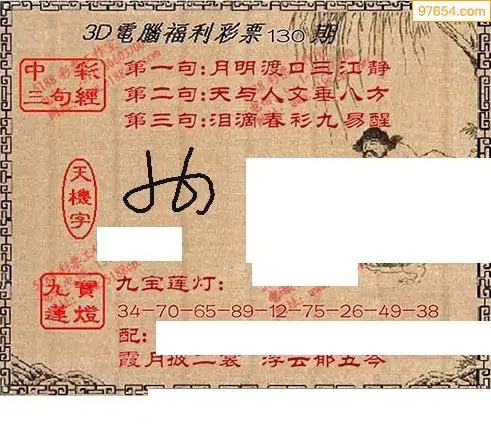 97654.com
3D電腦福利彩票130期
中彩三句經
第一句:月明渡口三江静
第二句:天与人文垂八方
第三句:泪滴春衫九易醒
天機字
九寶蓮燈
九宝莲灯:
34-70-65-89-12-75-26-49-38
配:
霞月披二裳 浮云郁五岑